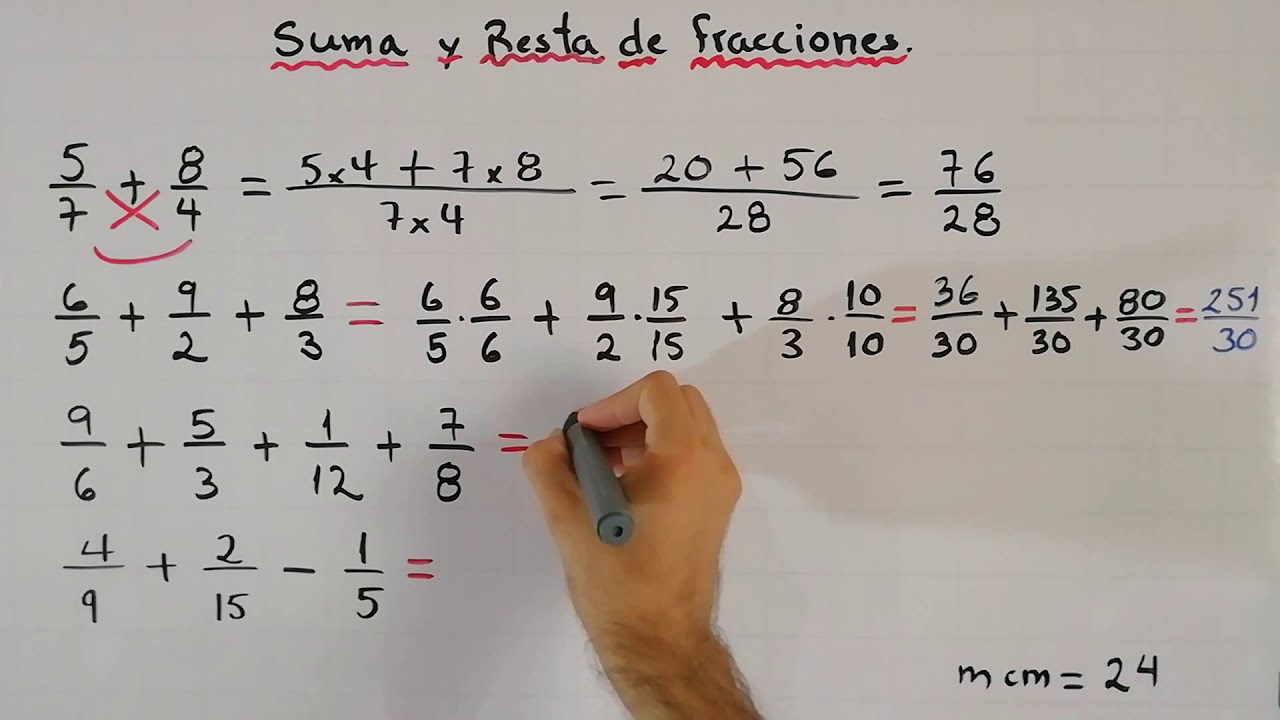 Suma y Resta de fracciones.
5/7 + 8/4 = (5x4 + 7x8)/(7x4) = (20 + 56)/28 = 76/28
6/5 + 9/2 + 8/3 = 6/5 · 6/6 + 9/2 · 15/15 + 8/3 · 10/10 = 36/30 + 135/30 + 80/30 = 251/30
9/6 + 5/3 + 1/12 + 7/8 =
4/9 + 2/15 - 1/5 =
mcm = 24